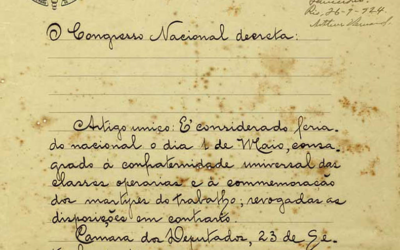 Rio, 26-9-924.
O Congresso Nacional decreta:
Artigo unico: É considerado feria-
do nacional o dia 1 de Maio, consa-
grado á confraternidade universal das
classes operarias e á commemoração
dos martyres do trabalho; revogadas as
disposições em contrario.
Camara dos Deputados, 23 de Se-